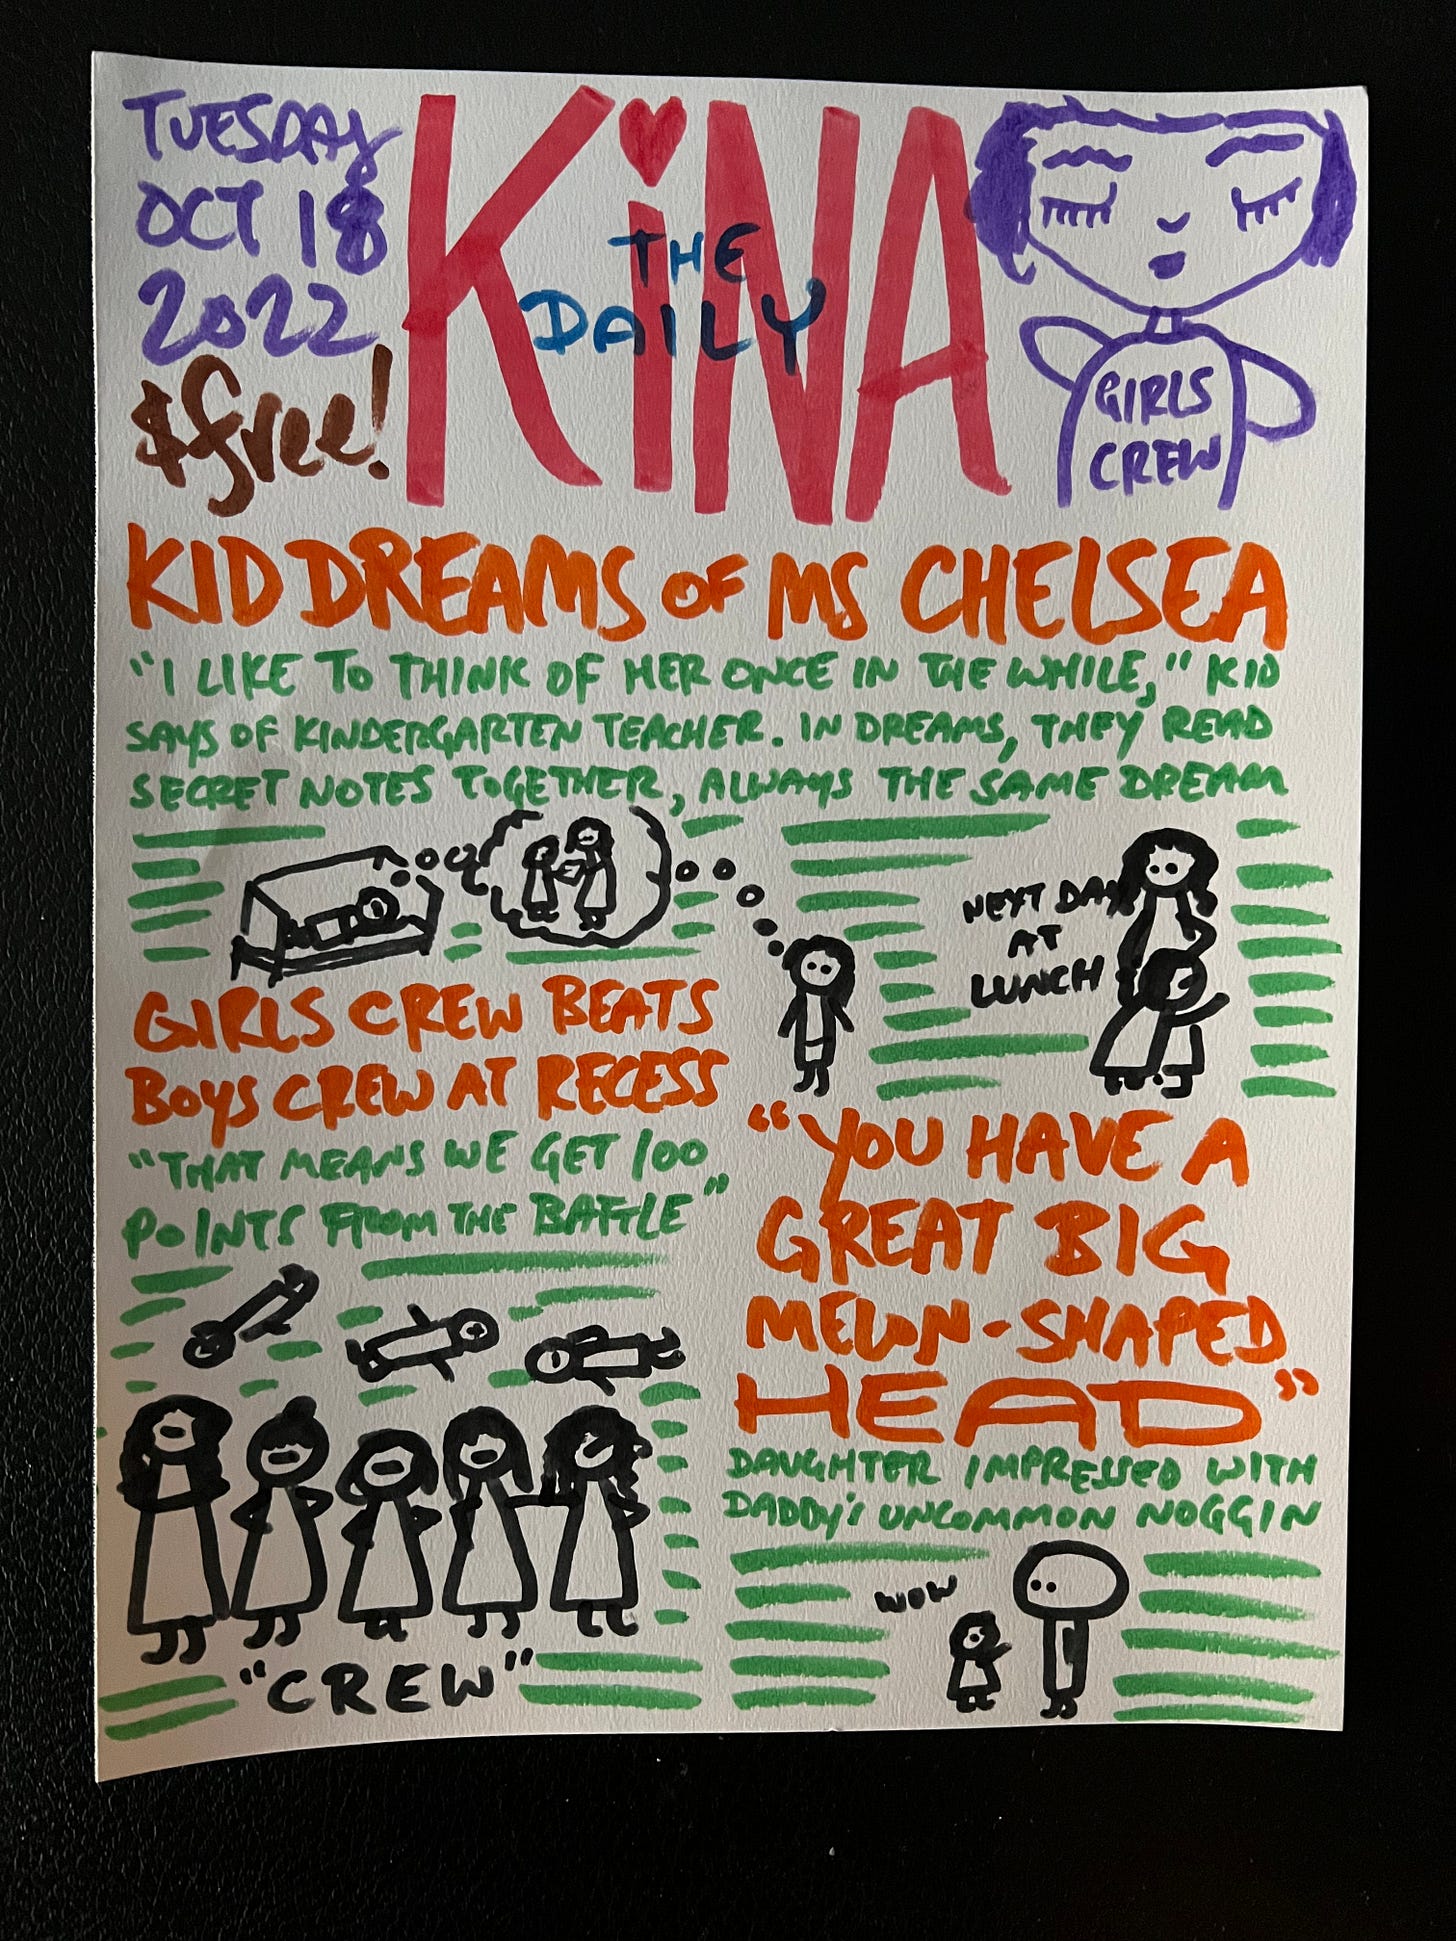 TUESDAY
OCT 18
2022
$free!
THE
DAILY
KiNA
GIRLS
CREW
KID DREAMS OF MS CHELSEA
"I LIKE TO THINK OF HER ONCE IN THE WHILE," KID
SAYS OF KINDERGARTEN TEACHER. IN DREAMS, THEY READ
SECRET NOTES TOGETHER, ALWAYS THE SAME DREAM
NEXT DAY
AT
LUNCH
GIRLS CREW BEATS
BOYS CREW AT RECESS
"THAT MEANS WE GET 100
POINTS FROM THE BATTLE"
"CREW"
"YOU HAVE A
GREAT BIG
MELON-SHAPED
HEAD"
DAUGHTER IMPRESSED WITH
DADDY'S UNCOMMON NOGGIN
WOW